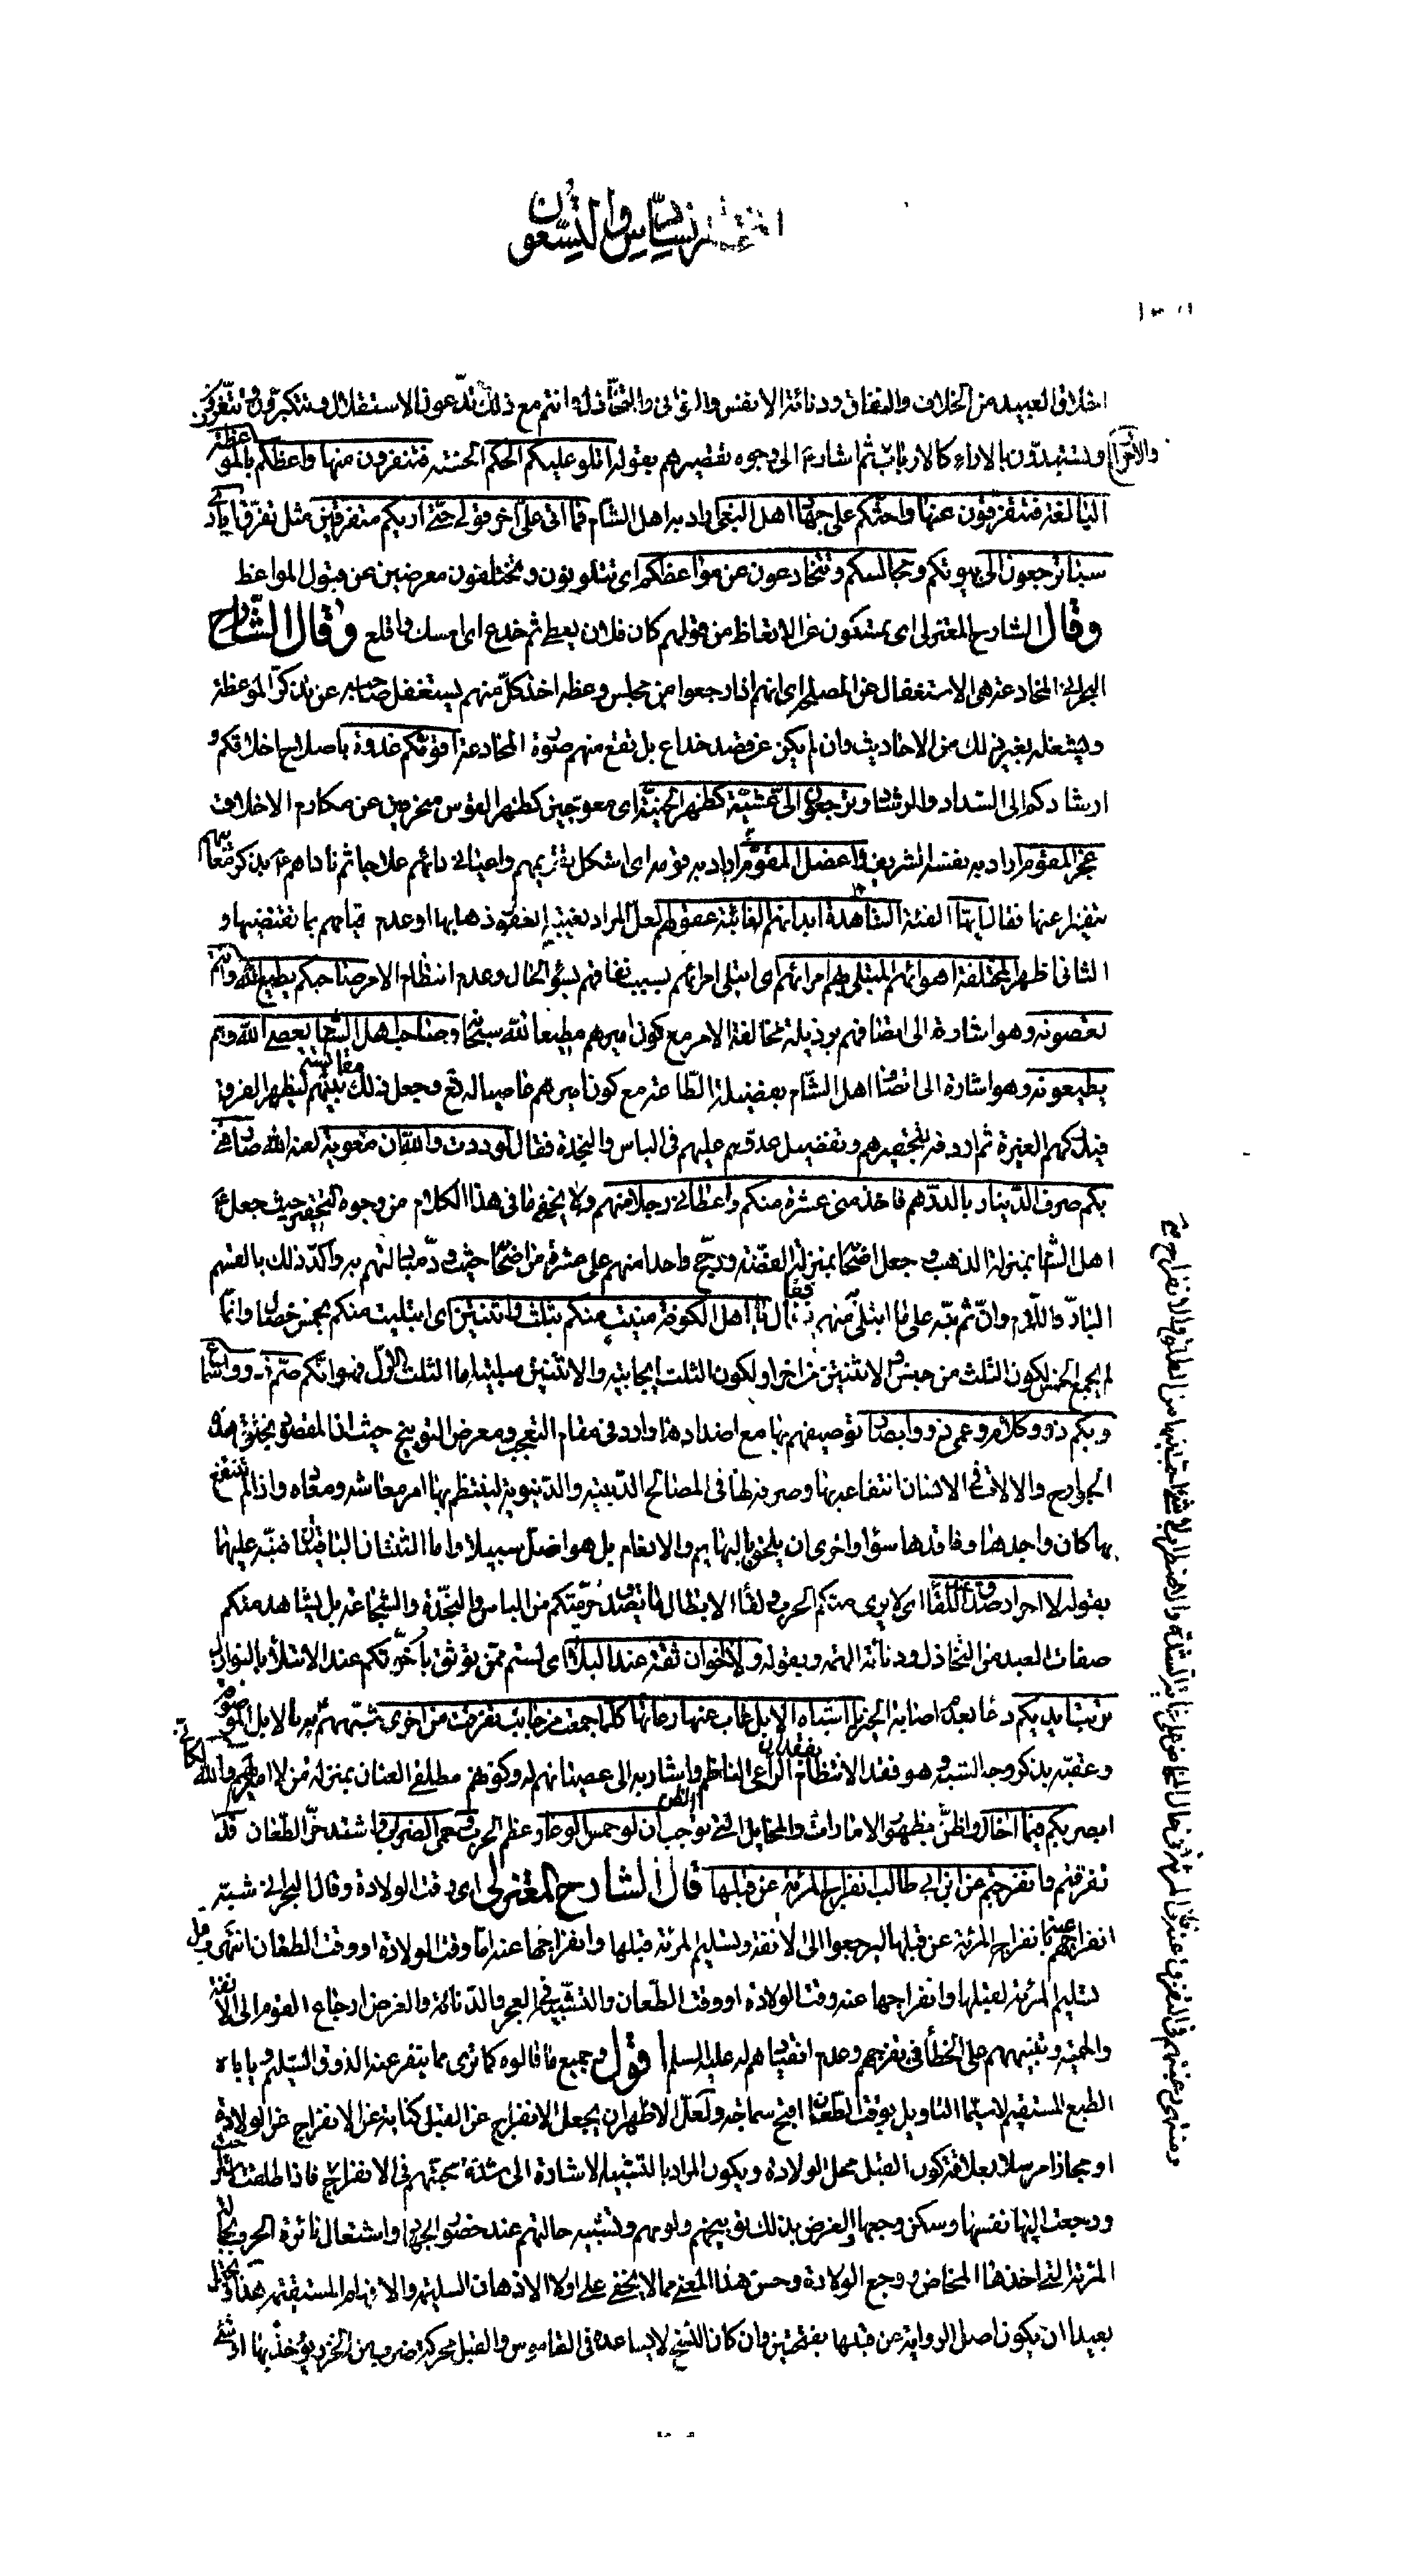 السادس والتسعون
اخلاق العبيد من الخلاف والنفاق ودنائة الانفس والتوانى والتخاذل وانتم مع ذلك تدّعون الاستقلال وتتكبرون وتتفرقون
والاحزاب وتستبدّون بالاراء كالارباب ثم اشار ع الى وجوه تقصيرهم بقوله اتلو عليكم الحكم الحسنة فتنفرون منها واعظكم بالموعظة
البالغة فتتفرّقون عنها واحثّكم على جهاد اهل البغى واد به اهل الشام فما اتى على اخر قولى حتّى اريكم متفرقين مثل تفرّق ايادى
سبا ترجعون الى بيوتكم ومجالسكم وتتخادعون عن مواعظكم اى تتلونون وتختلفون معرضين عن قبول المواعظ
وقال الشارح المعتزلى اى تمسكون عن الاتعاظ من قولهم كان فلان يعطى ثم خدع اى امسك واقلع وقال الشارح
البحرانى المخادعة هى الاستغفال عن المصلحة اى انهم اذا رجعوا من مجلس وعظه اخذ كلّ منهم يستغفل صاحبه عن تذكر الموعظة
ويشغله بغير ذلك من الاحاديث وان لم يكن عن قصد خداع بل تقع منهم صورة المخادعة اقوّمكم غدوة باصلاح اخلاقكم و
ارشادكم الى السّداد والرشاد وترجعون الىّ عشيّة كظهر الحنيّة اى معوجّين كظهر القوس منحرفين عن مكارم الاخلاق
عجز المقوّم اراد به نفسه الشريف واعضل المقوّم اراد به قومه اى اشكل تقويمهم واعيانى دائهم علاجا ثم ناداهم ع بذكر معايبهم
تنفيرا عنها فقال ايّها الفئة الشاهدة ابدانهم الغائبة عقولهم لعلّ المراد بغيبة العقول ذهابها او عدم قيامهم بما تقتضيها و
الثانى ظهر المختلفة اهوائهم المبتلى بهم امرائهم اى ابتلى امرائهم بسبب نفاقهم بسوء الحال وعدم انتظام الامر صاحبكم يطيع الله وانتم
تعصونه وهو اشارة الى اتصافهم برذيلة مخالفة الامر مع كون اميرهم مطيعا لله سبحانه وصاحب اهل الشام يعصى الله وهم
يطيعونه وهو اشارة الى اتصاف اهل الشام بفضيلة الطّاعة مع كون اميرهم عاصيا له تع وجعل ذلك مقايسة بينهم ليظهر الفرق
فيدركهم الغيرة ثم اردفه بتحقيرهم وتفضيل عدوّهم عليهم فى الباس والنجدة فقال لوددت والله ان معوية لعنه الله صارفنى
بكم صرف الدّينار بالدّرهم فاخذ منى عشرة منكم واعطانى رجلا منهم ولا يخفى ما فى هذا الكلام من وجوه التحقير حيث جعل ع
اهل الشام بمنزلة الذهب وجعل اصحابه بمنزلة الفضّة ورجّح واحدا منهم على عشرة من اصحابه حيث ودّ مبادلتهم به واكّد ذلك بالقسم
البارّ واللّام وانّ ثم نبّه على ما ابتلى منهم فقال يا اهل الكوفة منيت منكم بثلث واثنتين اى ابتليت منكم بخمس خصال وانّما
لم يجمع الخمس لكون الثلث من جنس والاثنتين من اخر او لكون الثلث ايجابية والاثنتين سلبية اما الثلث الاول فهو انّكم صمّ ذوو اسماع
وبكم ذوو كلام وعمى ذوو ابصار توصيفهم بها مع اضدادها وارد فى مقام التعجب ومعرض التوبيخ حيث ان المقصود بخلقة هذه
الجوارح والالات فى الانسان انتفاعه بها وصرفه لها فى المصالح الدّينية والدّنيوية لينتظم بها امر معاشه ومعاده واذا لم ينتفع
بها كان واجدها وفاقدها سواء واحرى ان يلحق بالبهايم والانعام بل هو اضلّ سبيلا واما الثنتان الباقيتان فنبّه عليهما
بقوله لا احرار صدق عند اللّقاء اى لا يرى منكم الحرب ولقاء الابطال ما يصدق حرّيتكم من الباس والنجّدة والشجاعة بل يشاهد منكم
صفات العبيد من التخاذل ودنائة الهمة وبقوله ولا اخوان ثقة عند البلاء اى لستم ممّن يوثق باخوّتكم عند الابتلاء بالنوازل
تربت ايديكم دعاء بعدم اصابة الخير يا اشباه الابل غاب عنها رعاتها كلّما جمعت من جانب تفرقت من اخر شبّههم ع بالابل الموصوفة
وعقّبه بذكر وجه الشبه وهو فقد الانتظام بفقدان الراعى الناظم واشار به الى عصيانهم له وكونهم مطلقى العنان بمنزلة من لا امير لهم والله لكانّى
ابصر بكم فيما اخال واظنّ بظهور الامارات والمخايل التى توجب الظن ان لو حمس الوغا وعظم الحرب وحمى الضراب واشتد حرّ الطعان قد
تفرقتم وانفرجتم عن ابن ابى طالب انفراج المرئة عن قبلها قال الشارح المعتزلى اى وقت الولادة وقال البحرانى شبّه
انفراجهم عنه بانفراج المرئة عن قبلها ليرجعوا الى الانفة وتسليم المرئة قبلها وانفراجها عنه امّا وقت الولادة او وقت الطعان انتهى وقيل
تسليم المرئة لقبلها وانفراجها عنه وقت الولادة او وقت الطّعان والتشبيه فى العجز والدّنائة والغرض ارجاع القوم الى الانفة
والحمية وتنبيههم على الخطأ فى تفرّجهم وعدم انقيادهم له عليه السلم اقول وجميع ما قالوه كما ترى مما يتنفر عنه الذوق السّليم ويأباه
الطبع المستقيم لا سيّما التاويل بوقت الطّعان اقبح سماجة ولعلّ الاظهر ان يجعل الانفراج عن القبل كناية عن الانفراج عن الولادة
او مجازا مرسلا بعلاقة كون القبل محل الولادة ويكون المراد بالتشبيه الاشارة الى شدّة محبّتهم فى الانفراج فاذا طلقت
ورجعت اليها نفسها وسكن وجعها والغرض بذلك توبيخهم ولومهم وتشبيه حالتهم عند حضور الجهاد واشتعال نائرة الحرب بحال
المرئة التى اخذها المخاض ووجع الولادة وحسن هذا المعنى مما لا يخفى على اولى الاذهان السليمة والافهام المستقيمة هذا ويحتمل
بعيدا ان يكون اصل الرواية من قبلها بفتحتين وان كان النّسخ لا يساعده فى القاموس والقبل محركة ضرب من الخرز يؤخذ بها او شىء